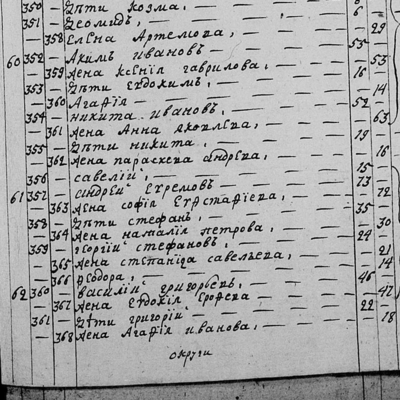 350 — Дѣти козма, — — — 6
351 — Ѳеомидъ, — — — 6
— 358 Елена Артемова, — — — 29
60 352 — Акимъ ивановъ — — — 53
— 359 жена ксенія гаврилова, — — — 53
353 — Дѣти Евдокимъ, — — — 16
— 360 Агафія — — — 14
354 — никита ивановъ, — — — 52
— 361 жена Анна яковлева, — — — 63
355 — Дѣти никита, — — — 19
— 362 жена параскева андрѣева, — — — 16
356 — савелій, — — — 15
61 357 — андрей Ефремовъ — — — 73
— 363 жена софія Евстафіева, — — — 72
358 — Дѣти стефанъ, — — — 35
— 364 жена наталія петрова, — — — 30
359 — георгій стефановъ, — — — 24
— 365 жена степанида савельева, — — — 21
— 366 Ѳеодора, — — — 14
62 360 — василій григорьевъ, — — — 46
— 367 жена Евдокія — — — 47
361 — Дѣти григорій — — — 22
— 368 жена Агафія иванова, — — — 18
округи